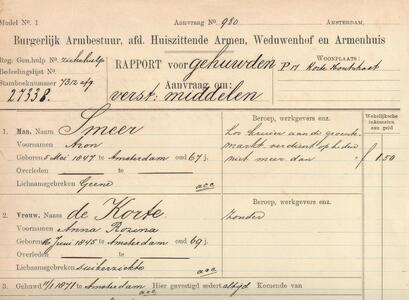 Model No. 1 Aanvraag No. 980 AMSTERDAM,
Burgerlijk Armbestuur, afd. Huiszittende Armen, Weduwenhof en Armenhuis
Reg. Gen. hulp No. ziekehulp
Bedeelingslijst
Stamboeknummer
27338.
RAPPORT voor gehuwden
Aanvraag om:
verst. middelen
WOONPLAATS:
Korte Houtstraat
1. Man. Naam Smeer
Voornamen Aron
Geboren 5 Mei 1847 te Amsterdam oud 67 j.
Overleden te
Lichaamsgebreken Geene
Beroep, werkgevers enz.
markt verdient op heden
niet meer dan
Wekelijksche
inkomsten
aan geld
f 1.50
2. Vrouw. Naam de Korte
Voornamen Anna Rozina
Geboren 16 Juni 1845 te Amsterdam oud 69 j.
Overleden te
Lichaamsgebreken suikerziekte
Beroep, werkgevers enz.
zonder
3. Gehuwd 1871 te Amsterdam Hier gevestigd sedert altijd Komende van